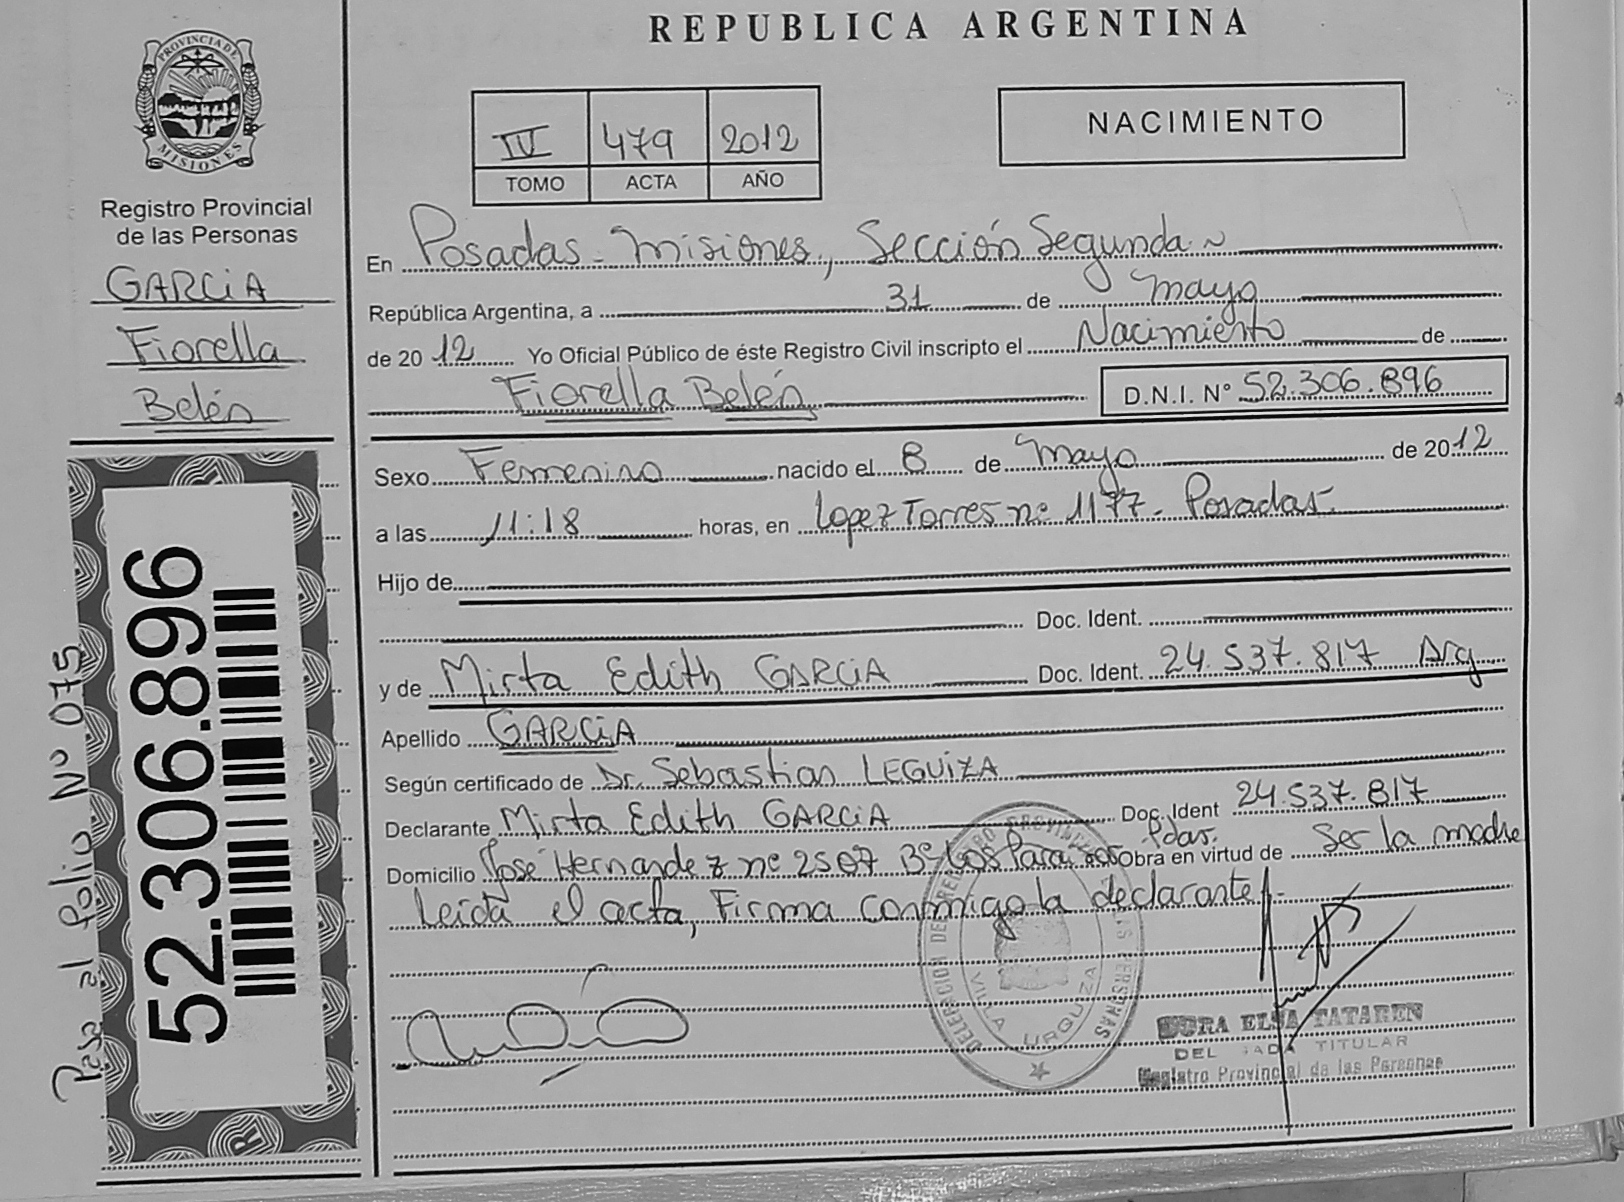 REPUBLICA ARGENTINA
PROVINCIA DE
MISIONES
Registro Provincial
de las Personas
GARCiA
Fiorella
Belén
52.306.896
Pasa al folio Nº 075
IV 479 2012
TOMO ACTA AÑO
NACIMIENTO
En Posadas - Misiones, Sección Segunda ~
República Argentina, a 31 de Mayo
de 2012 Yo Oficial Público de éste Registro Civil inscripto el Nacimiento de
Fiorella Belén D.N.I. Nº 52.306.896
Sexo Femenino nacido el 8 de Mayo de 2012
a las 11:18 horas, en Lopez Torres nº 1177. Posadas.
Hijo de
Doc. Ident.
y de Mirta Edith GARCiA Doc. Ident. 24.537.817 Arg
Apellido GARCiA
Según certificado de Dr. Sebastian LEGUIZA
Declarante Mirta Edith GARCiA Doc. Ident 24.537.817
Domicilio José Hernandez nº 2507 Bº Los Paraisos Pdas. Obra en virtud de Ser la madre
Leida el acta, Firma conmigo la declarante.-
DELEGACION DEL REGISTRO PROVINCIAL DE LAS PERSONAS
VILLA URQUIZA
DORA ELSA TATAREN
DELEGADA TITULAR
Registro Provincial de las Personas
R